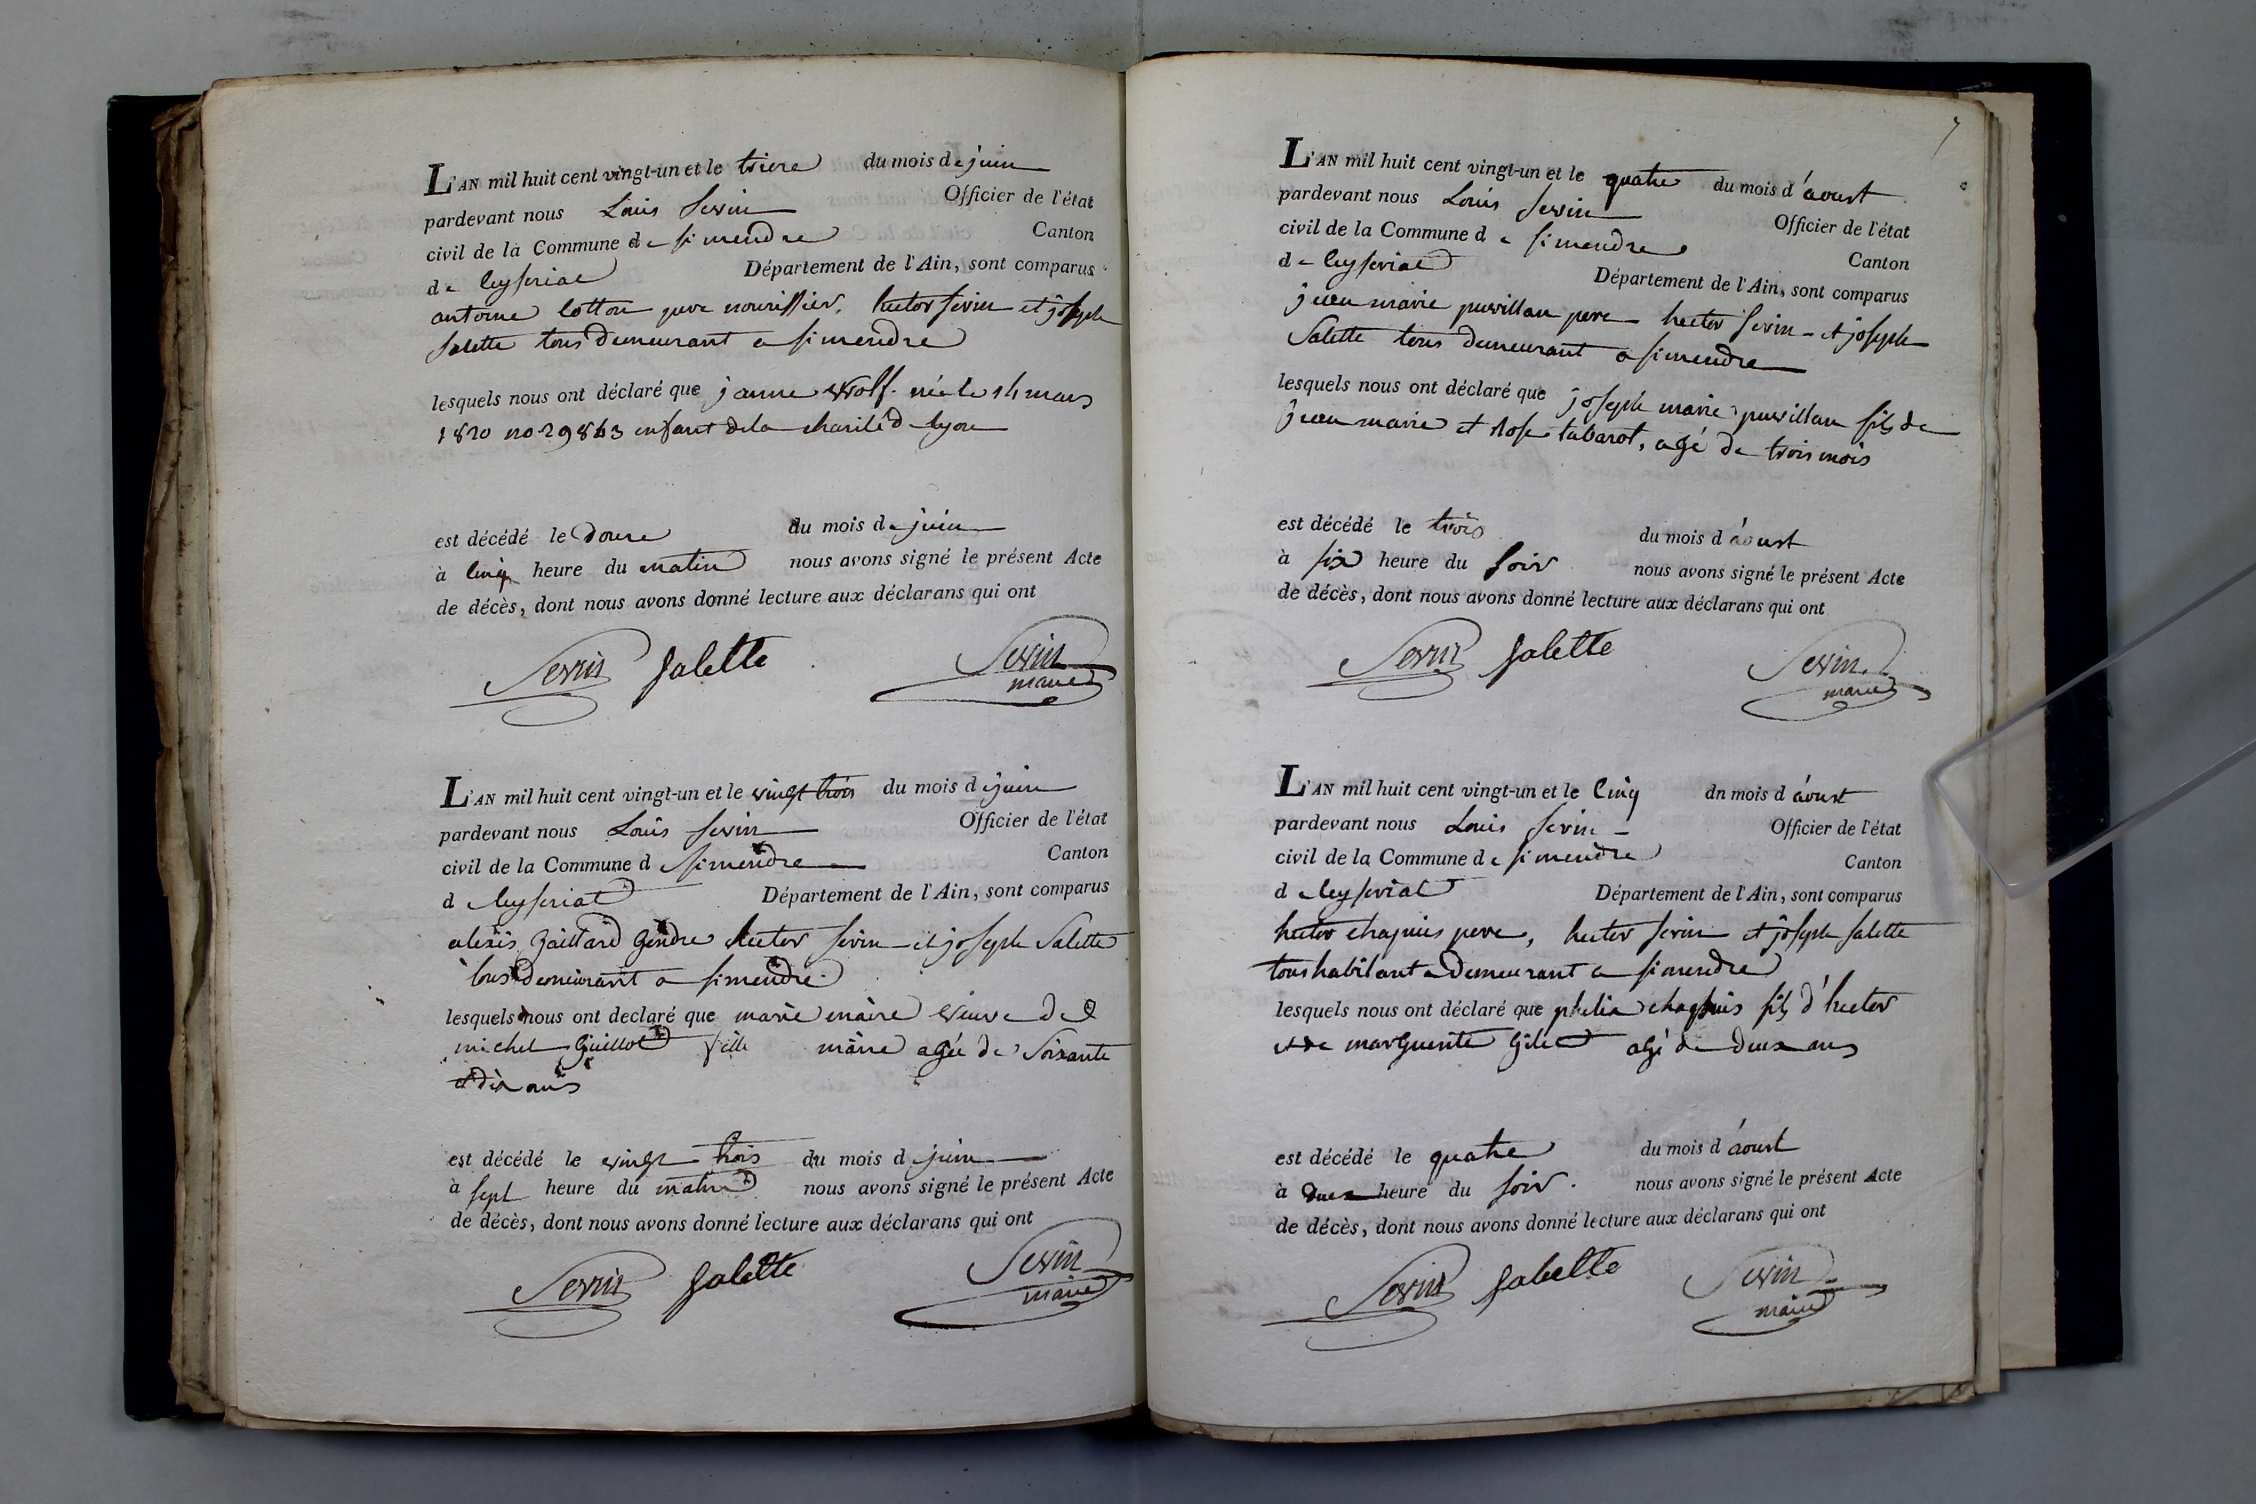 L'AN mil huit cent vingt-un et le trieze du mois de juin
pardevant nous Louis Servin Officier de l'état
civil de la Commune de simendre Canton
de Ceyseriat Département de l'Ain, sont comparus
antoine lotton pere nourissier, hector servin et joseph
Salette tous demeurant a simendre
lesquels nous ont déclaré que jeanne Wolf. née le 14 mars
1820 no 29863 enfant dela charité de lyon
est décédé le douze du mois de juin
à cinq heure du matin nous avons signé le présent Acte
de décès, dont nous avons donné lecture aux déclarans qui ont
Servin Salette Servin
maire
L'AN mil huit cent vingt-un et le vingt trois du mois de juin
pardevant nous Louis Servin Officier de l'état
civil de la Commune d simendre Canton
d Ceyseriat Département de l'Ain, sont comparus
alexis gaillard gendre hector servin et joseph Salette
tous demeurant a simendre
lesquels nous ont declaré que marie maire veuve de
michel guillot fille maire agée de soixante
et dix ans
est décédé le vingt trois du mois de juin
à sept heure du matin nous avons signé le présent Acte
de décès, dont nous avons donné lecture aux déclarans qui ont
Servin Salette Servin
maire
7
L'AN mil huit cent vingt-un et le quatre du mois d'aoust
pardevant nous Louis Servin Officier de l'état
civil de la Commune de simendre Canton
de Ceyseriat Département de l'Ain, sont comparus
jean marie puvillan pere hector servin et joseph
Salette tous demeurant a simendre
lesquels nous ont déclaré que joseph marie puvillan fils de
jean marie et rose tabarot, agé de trois mois
est décédé le trois du mois d'aoust
à six heure du soir nous avons signé le présent Acte
de décès, dont nous avons donné lecture aux déclarans qui ont
Servin Salette Servin
maire
L'AN mil huit cent vingt-un et le cinq dn mois d'aoust
pardevant nous Louis Servin Officier de l'état
civil de la Commune de simendre Canton
d Ceyseriat Département de l'Ain, sont comparus
hector chapuis pere, hector servin et joseph salette
tous habitant demeurant a simendre
lesquels nous ont déclaré que phelix chapuis fils d'hector
et de marguerite agé de deux ans
est décédé le quatre du mois d'aoust
à deux heure du soir. nous avons signé le présent Acte
de décès, dont nous avons donné lecture aux déclarans qui ont
Servin Salette Servin
maire